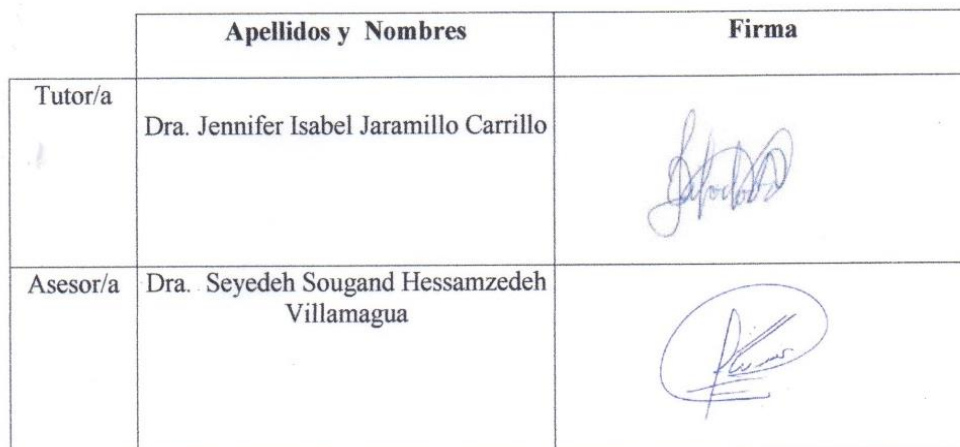 Apellidos y Nombres Firma
Tutor/a
Dra. Jennifer Isabel Jaramillo Carrillo
Asesor/a Dra. Seyedeh Sougand Hessamzedeh
Villamagua